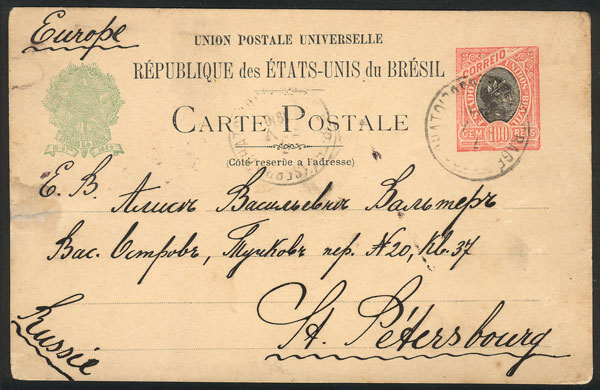 Europe
UNION POSTALE UNIVERSELLE
RÉPUBLIQUE des ÉTATS-UNIS du BRÉSIL
CORREIO
CARTE POSTALE
CEM 100 REIS
(Côté reserve a l'adresse)
Е. В. Алисѣ Васильевнѣ Вальтеръ
Вас. Островъ, Тучковъ пер. N20, Кв. 37
St. Pétersbourg
Russie